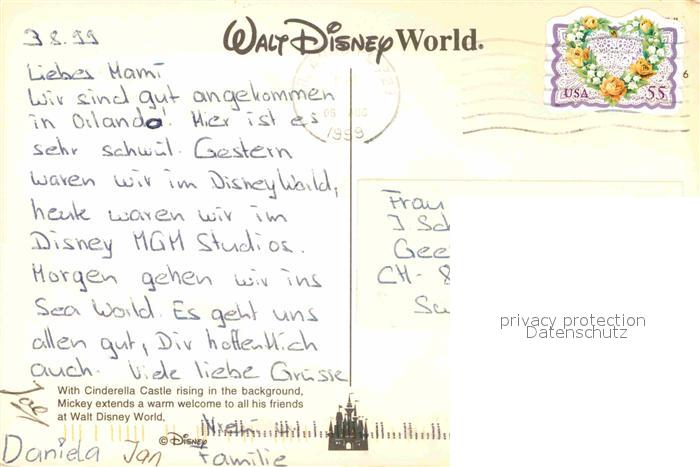 3.8.99
WALT DISNEY World.
USA 55
1999
Liebes Mami
Wir sind gut angekommen
in Orlando. Hier ist es
sehr schwül. Gestern
waren wir im DisneyWorld,
heute waren wir im
Disney MGM Studios.
Morgen gehen wir ins
Sea World. Es geht uns
allen gut, Dir hoffentlich
auch. Viele liebe Grüsse
Frau
J Sc
Gee
CH- 8
privacy protection
Datenschutz
With Cinderella Castle rising in the background,
Mickey extends a warm welcome to all his friends
at Walt Disney World.
© Disney
Daniela Jan Familie